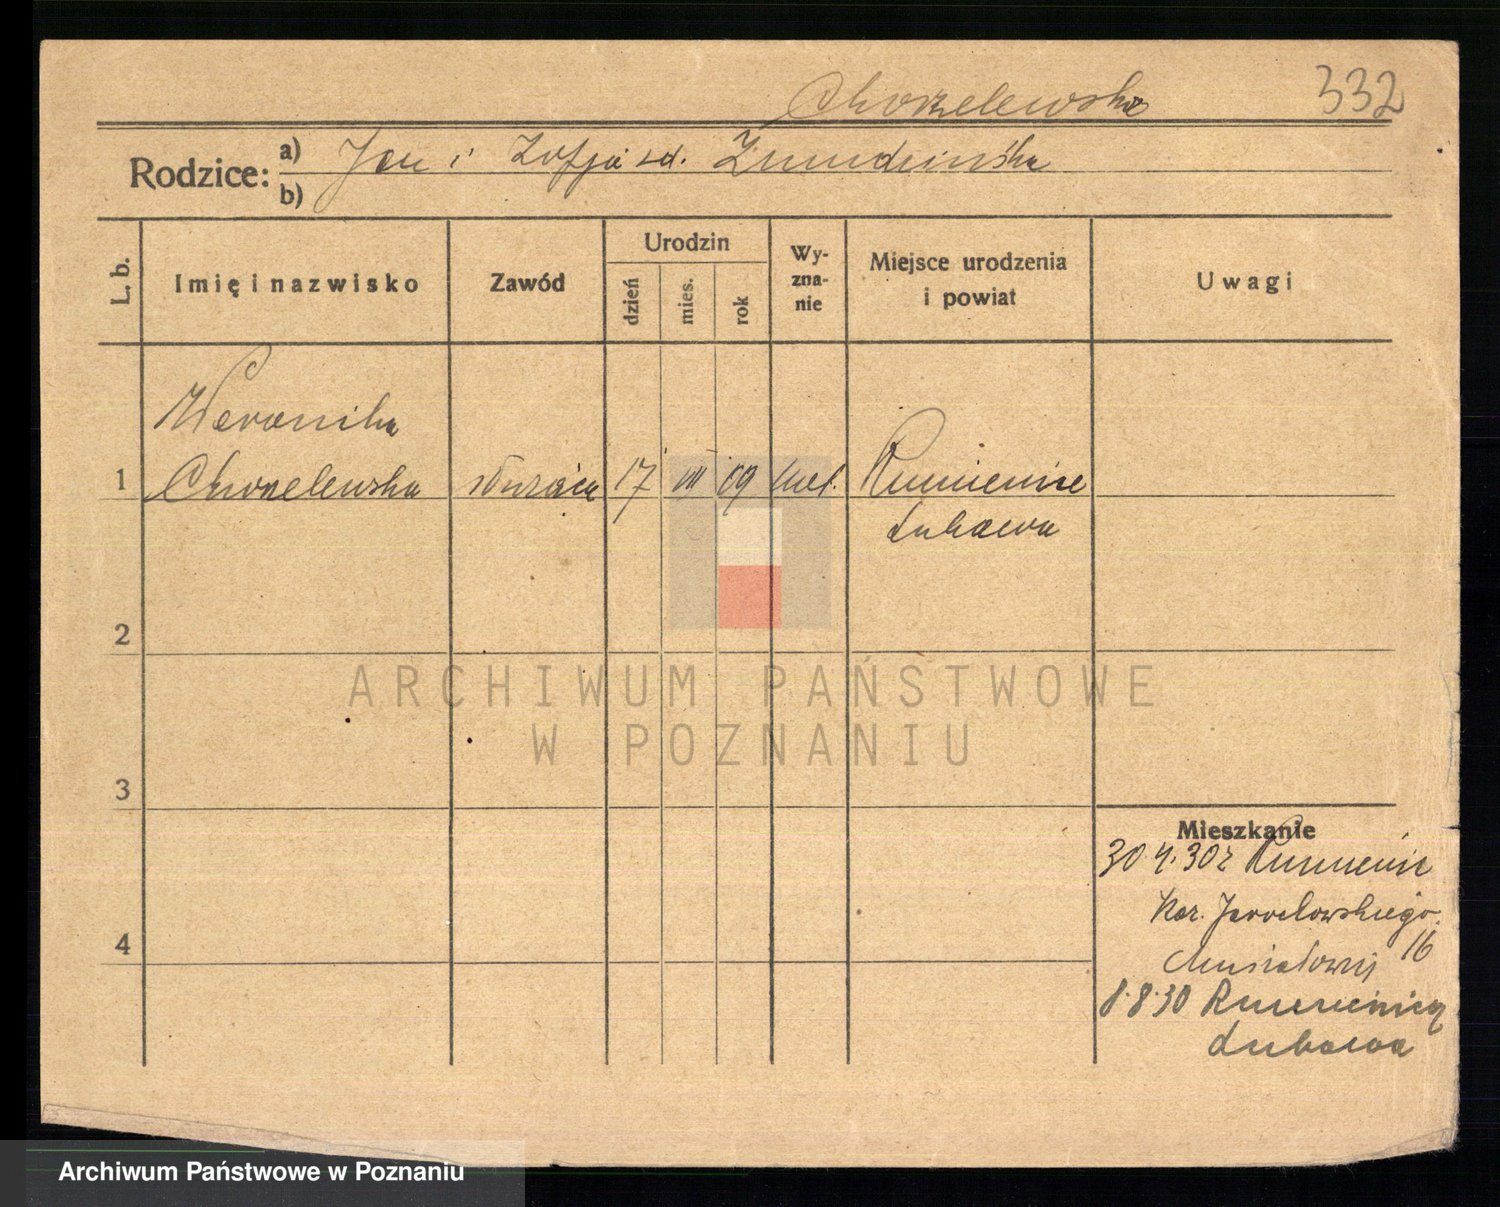 Chorzelewska
332
Rodzice:
a) Jan i Zofja zd. Żmudzińska
b)
L. b.
Imię i nazwisko
Zawód
Urodzin
dzień
mies.
rok
Wy-
zna-
nie
Miejsce urodzenia
i powiat
Uwagi
Weronika
1 Chorzelewska służąca 17 VII 09 kat. Rumienice
Lubawa
2
3
4
Mieszkanie
30.4.30 z Rumienic
Kar. Jarochowskiego
16
8.8.30 Rumienica
Lubawa
ARCHIWUM PAŃSTWOWE
W POZNANIU
Archiwum Państwowe w Poznaniu